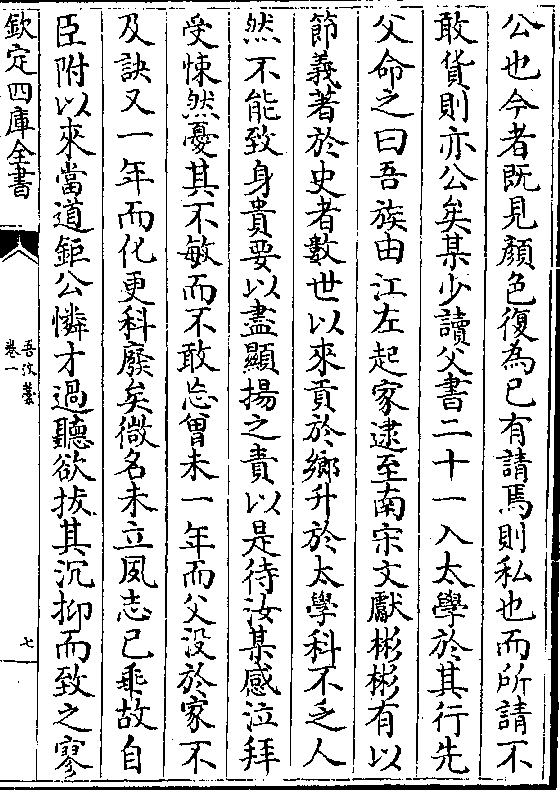 公也今者既見顏色復為已有請焉則私也而所請不
敢貨則亦公矣某少讀父書二十一入太學於其行先
父命之曰吾族由江左起家逮至南宋文獻彬彬有以
節義著於史者數世以來貢於鄉升於太學科不乏人
然不能致身貴要以盡顯揚之責以是待汝某感泣拜
受悚然憂其不敏而不敢忘曾未一年而父没於家不
及訣又一年而化更科廢矣微名未立夙志已乖故自
臣附以來當道鉅公憐才過聽欲拔其沉抑而致之寥
欽定四庫全書
吾汶藁
卷一
七